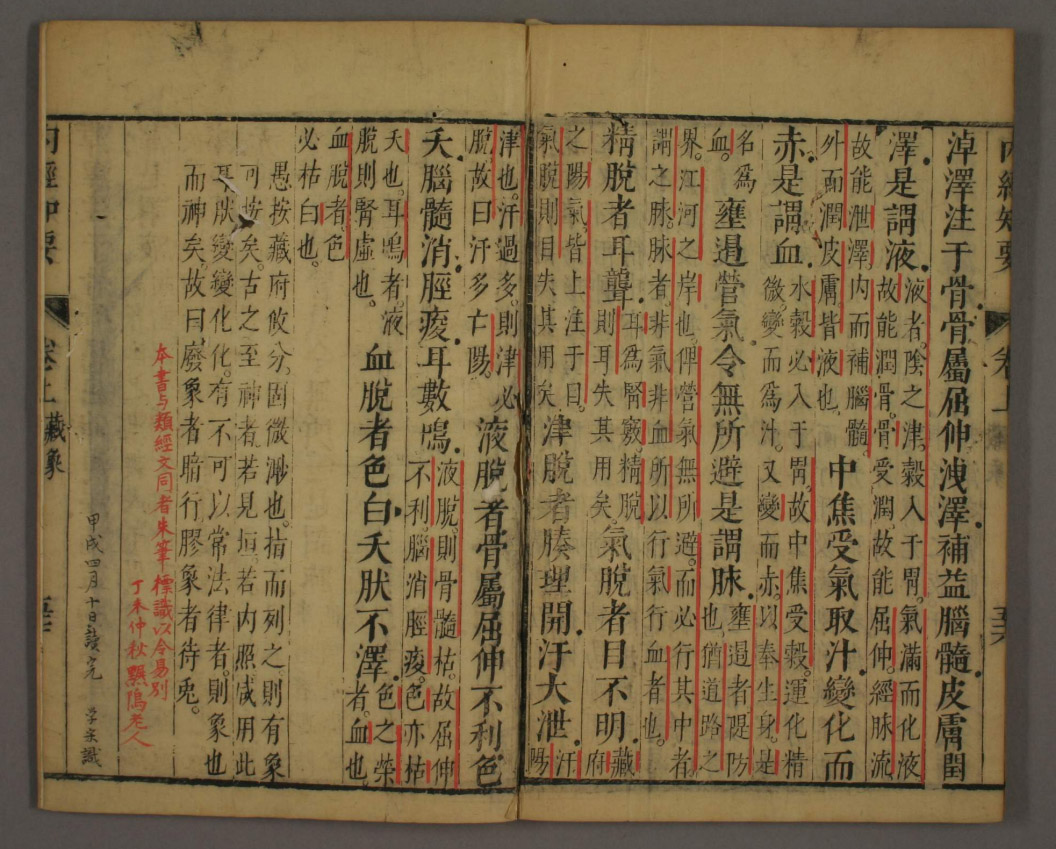 內經知要 卷上
淖澤注于骨骨屬屈伸洩澤補益腦髓皮膚潤
澤是謂液
液者陰之津穀入于胃氣滿而化液
故能潤骨骨受潤故能屈伸經脉流
故能泄澤內而補腦髓
外而潤皮膚皆液也
中焦受氣取汁變化而
赤是謂血
水穀必入于胃故中焦受穀運化精
微變而為汁又變而赤以奉生身是
名為
血
壅遏營氣令無所避是謂脉
壅遏者隄防
也猶道路之
界江河之岸也俾營氣無所避而必行其中者
謂之脉脉者非氣非血所以行氣行血者也
精脫者耳聾
耳為腎竅精脫
則耳失其用矣
氣脫者目不明
藏
府
之陽氣皆上注于目
氣脫則目失其用矣
津脫者腠理開汗大泄
汗
陽
津也汗過多則津必
脫故曰汗多亡陽
液脫者骨屬屈伸不利色
夭腦髓消脛痠耳數鳴
液脫則骨髓枯故屈伸
不利腦消脛痠色亦枯
夭也耳鳴者液
脫則腎虛也
血脫者色白夭狀不澤
色之榮
者血也
血脫者色
必枯白也
愚按藏府攸分固微渺也指而列之則有象
可按矣古之至神者若見垣若內照咸用此
耳狀變變化化有不可以常法律者則象也
而神矣故曰廢象者暗行膠象者待兔
本書与類經文同者朱筆標識以令易別
丁未仲秋黙隖老人
甲戌四月十日讀完
內經知要 卷上 藏象